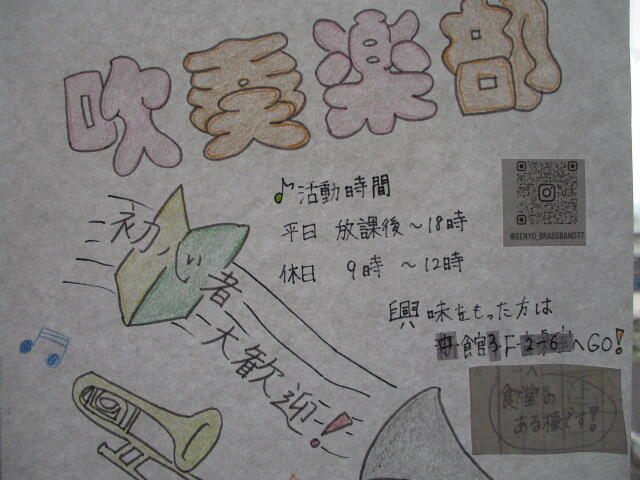 吹奏楽部
♪活動時間
平日 放課後〜18時
休日 9時 〜12時
@SENYO_BRASSBAND77
初心者大歓迎!
興味をもった方は
館3F 2-6へGO!
食堂の
ある棟です!